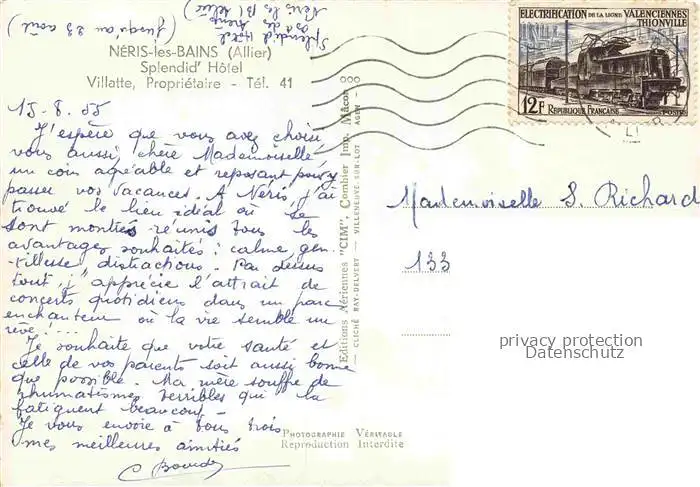 (Jusqu'au 23 août)
Splendid Hôtel
Néris
NÉRIS-les-BAINS (Allier)
Splendid' Hôtel
Villatte, Propriétaire - Tél. 41
15-8-55
J'espère que vous avez choisi
vous aussi, chère Mademoiselle,
un coin agréable et reposant pour y
passer vos vacances. A Néris, j'ai
trouvé le lieu idéal où se
sont montrés réunis tous les
avantages souhaités : calme, gen-
tillesse, distractions. Par dessus
tout, j'apprécie l'attrait de
concerts quotidiens dans un parc
enchanteur où la vie semble un
rêve !...
Je souhaite que votre santé et
celle de vos parents soit aussi bonne
que possible. Ma mère souffre de
rhumatismes terribles qui la
fatiguent beaucoup -
Je vous envoie à tous trois
mes meilleures amitiés
Editions Aériennes "CIM", Combier Imp. Mâcon
CLICHÉ RAY-DELVERT - VILLENEUVE-SUR-LOT - AGEN
PHOTOGRAPHIE VÉRITABLE
Reproduction Interdite
ELECTRIFICATION DE LA LIGNE VALENCIENNES
THIONVILLE
12F REPUBLIQUE FRANÇAISE POSTES
Mademoiselle S. Richard
133
privacy protection
Datenschutz